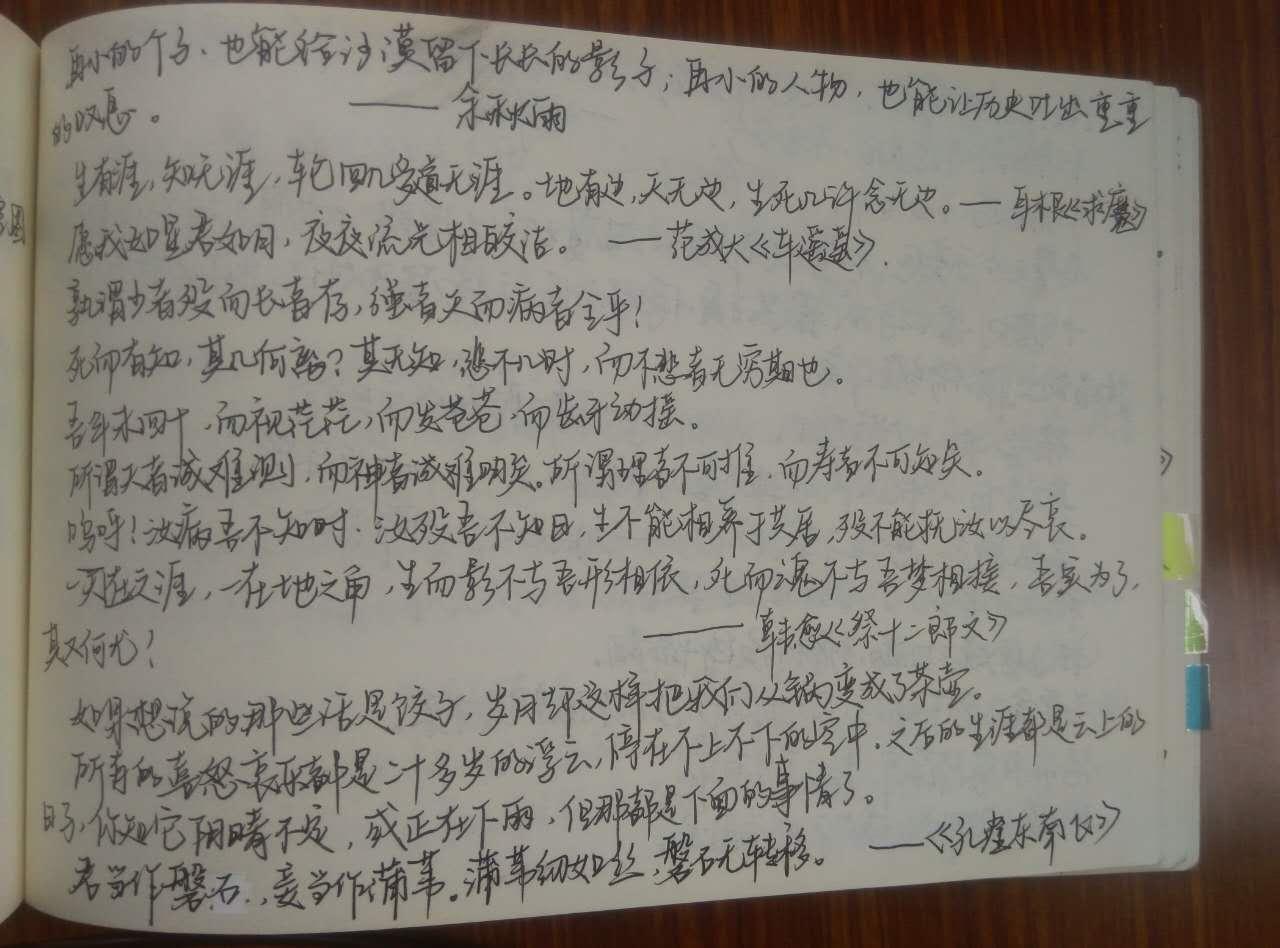 再小的个子、也能给沙漠留下长长的影子；再小的人物，也能让历史吐出重重
的叹息。 —— 余秋雨
生有涯，知无涯，轮回几多道无涯。地有边，天无边，生死几许念无边。—— 耳根《求魔》
愿我如星君如月，夜夜流光相皎洁。 —— 范成大《车遥遥》.
孰谓少者殁而长者存，强者夭而病者全乎！
死而有知，其几何离？其无知，悲不几时，而不悲者无穷期也。
吾年未四十，而视茫茫，而发苍苍，而齿牙动摇。
所谓天者诚难测，而神者诚难明矣。所谓理者不可推，而寿者不可知矣。
呜呼！汝病吾不知时，汝殁吾不知日，生不能相养于共居，殁不能抚汝以尽哀。
一在天之涯，一在地之角，生而影不与吾形相依，死而魂不与吾梦相接，吾实为了，
其又何尤！ —— 韩愈《祭十二郎文》
如果想说的那些话是饺子，岁月却这样把我们从锅变成了茶壶。
所有的喜怒哀乐都是二十多岁的浮云，停在不上不下的空中，之后的生涯都是云上的
日子，你知它阴晴不定，或正在下雨，但那都是下面的事情了。
君当作磐石，妾当作蒲苇。蒲苇纫如丝，磐石无转移。 ——《孔雀东南飞》